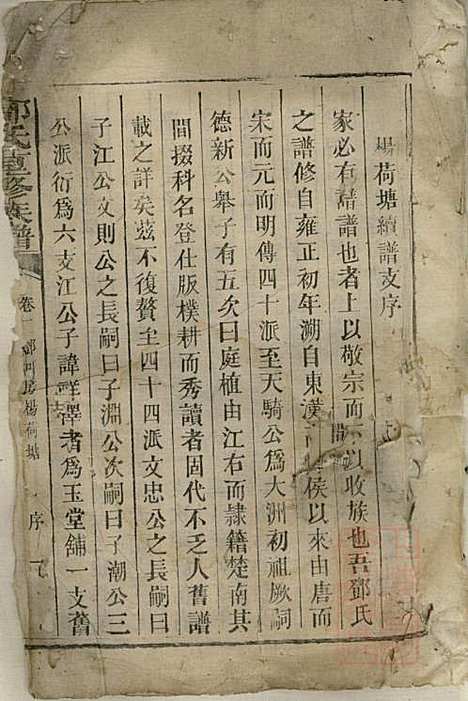 楊荷塘續譜支序
家必有譜譜也者上以敬宗而下以收族也吾鄧氏
之譜修自雍正初年溯自東漢高密侯以來由唐而
宋而元而明傳四十派至天騎公爲大洲初祖厥詞
德新公舉子有五次曰庭植由江右而隸籍楚南其
間掇科名登仕版樸耕而秀讀者固代不乏人舊譜
載之詳矣茲不復贅至四十四派文忠公之長嗣曰
子江公文則公之長嗣曰子淵公次嗣曰子潮公三
公派衍爲六支江公子諱祥澤者爲玉堂舖一支舊
鄧氏重修族譜
卷一
鄧門房楊荷塘
序